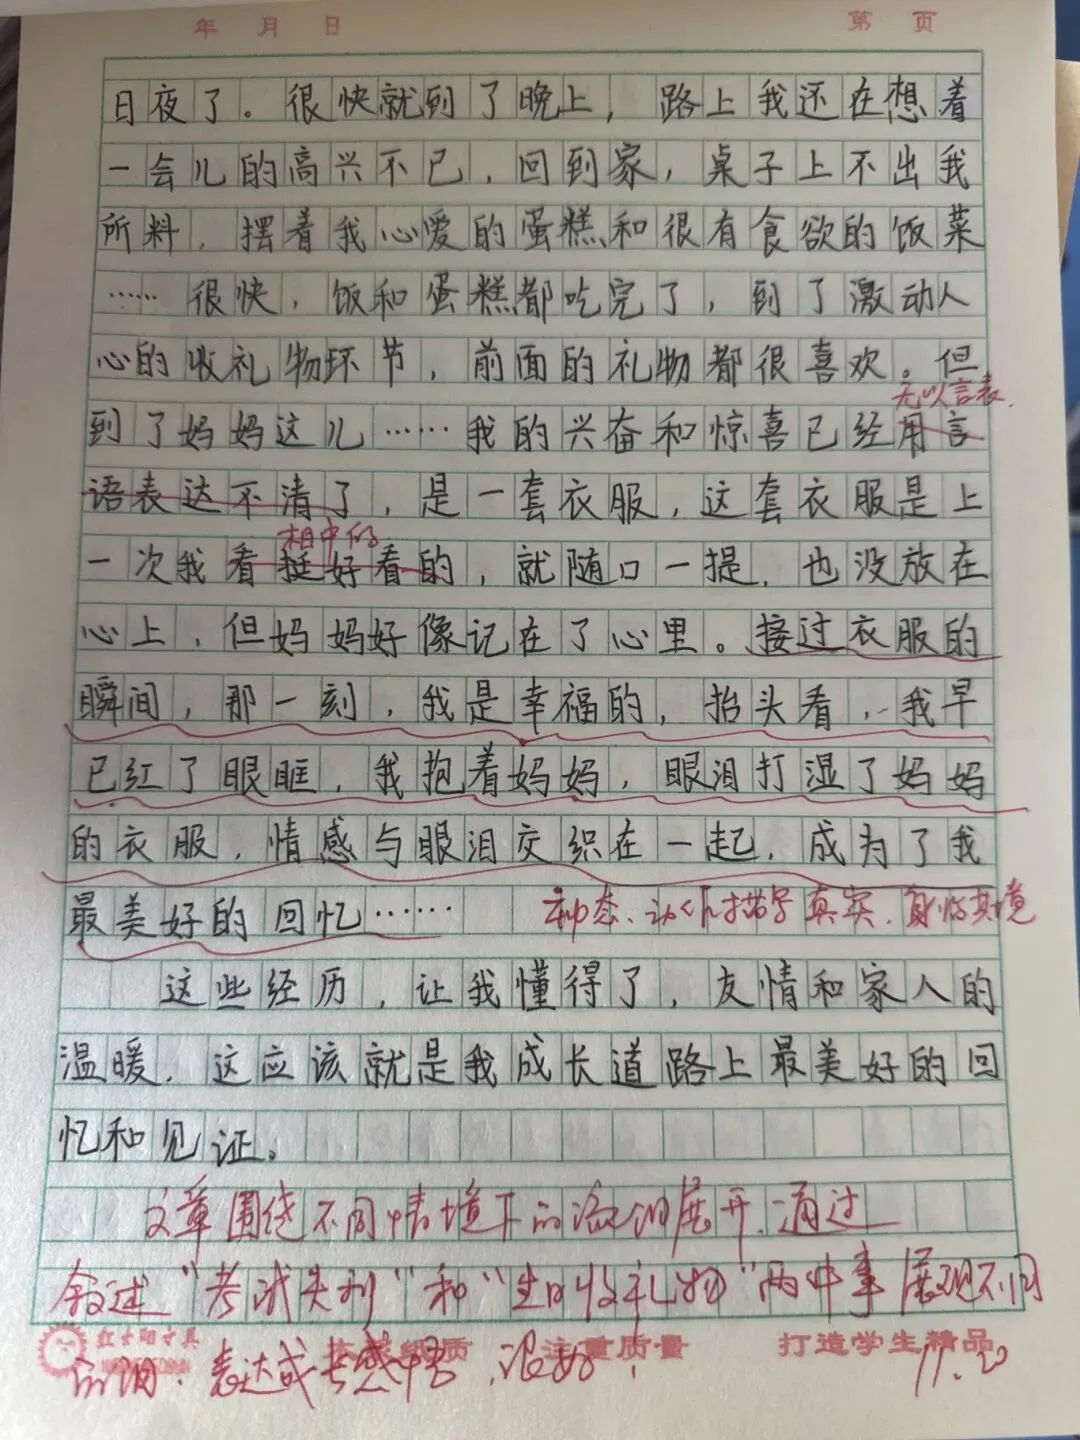 年 月 日 第 页
日夜了。很快就到了晚上，路上我还在想着
一会儿的高兴不已，回到家，桌子上不出我
所料，摆着我心爱的蛋糕和很有食欲的饭菜
……很快，饭和蛋糕都吃完了，到了激动人
心的收礼物环节，前面的礼物都很喜欢。但
无以言表.
到了妈妈这儿……我的兴奋和惊喜已经用言
语表达不清了，是一套衣服，这套衣服是上
相中的
一次我看挺好看的，就随口一提，也没放在
心上，但妈妈好像记在了心里。接过衣服的
瞬间，那一刻，我是幸福的，抬头看，我早
已红了眼眶，我抱着妈妈，眼泪打湿了妈妈
的衣服，情感与眼泪交织在一起，成为了我
最美好的回忆……
神态、动作描写真实，身临其境
这些经历，让我懂得了，友情和家人的
温暖，这应该就是我成长道路上最美好的回
忆和见证。
文章围绕不同情境下的泪展开，通过
叙述"考试失利"和"生日收礼物"两件事展现不同
红太阳文具 质 注重质量 打造学生精品
的泪，表达成长感悟，很好！ 11.20